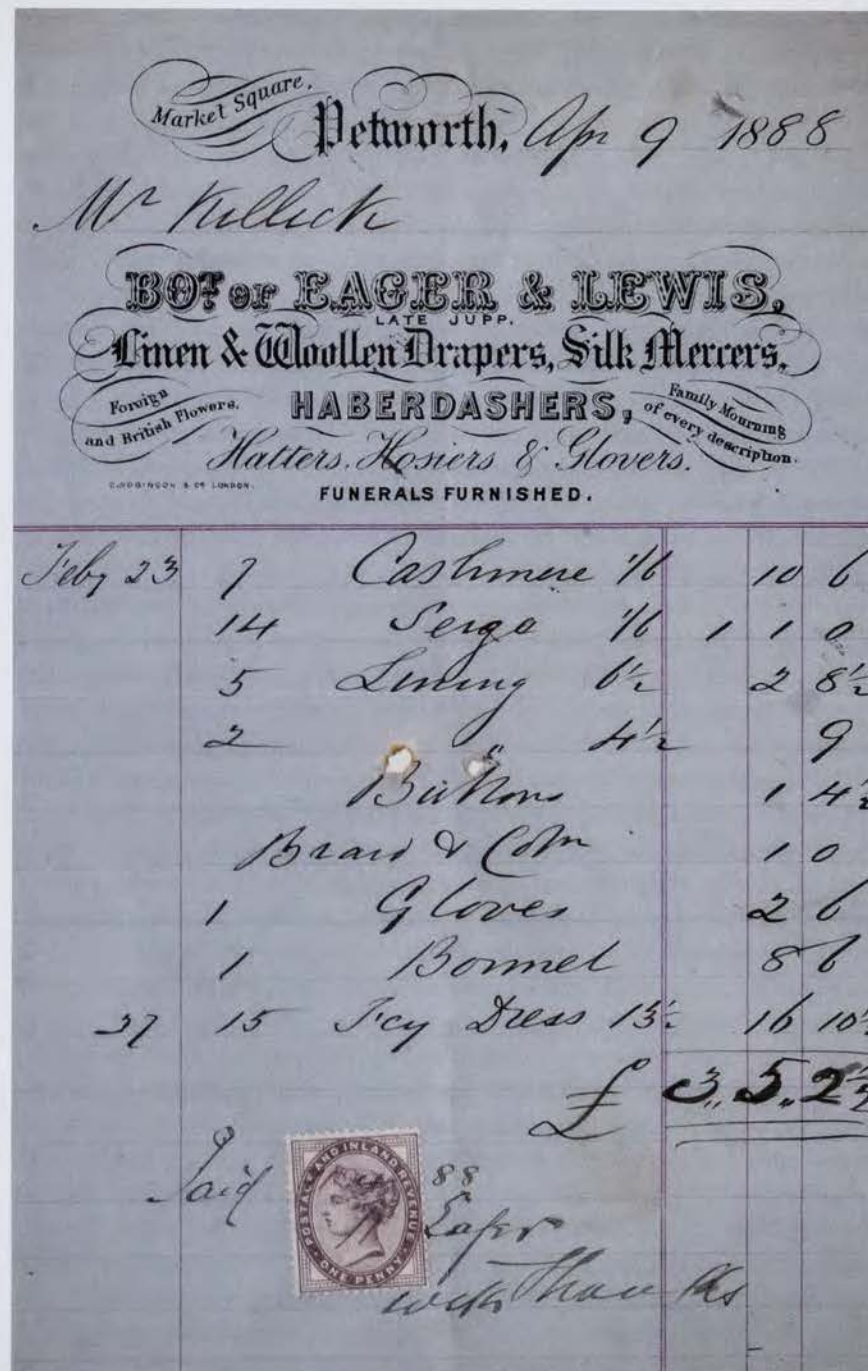 Market Square,
Petworth, Apr 9 1888
Mr Killick
BOT. OF EAGER & LEWIS,
LATE JUPP.
Linen & Woollen Drapers, Silk Mercers,
Foreign and British Flowers.
HABERDASHERS,
Family Mourning of every description.
Hatters, Hosiers & Glovers.
C. ROBINSON & CO LONDON.
FUNERALS FURNISHED.
Feby 23 7 Cashmere 1/6 10 6
14 Serge 1/6 1 1 0
5 Lining 6½ 2 8½
2 " 4½ 9
Buttons 1 4½
Braid & Cotn 1 0
1 Gloves 2 6
1 Bonnet 8 6
27 15 Fcy Dress 13½ 16 10½
£ 3,, 5,, 2½
Paid
POSTAGE AND INLAND REVENUE
ONE PENNY
88
Eager
with Thanks